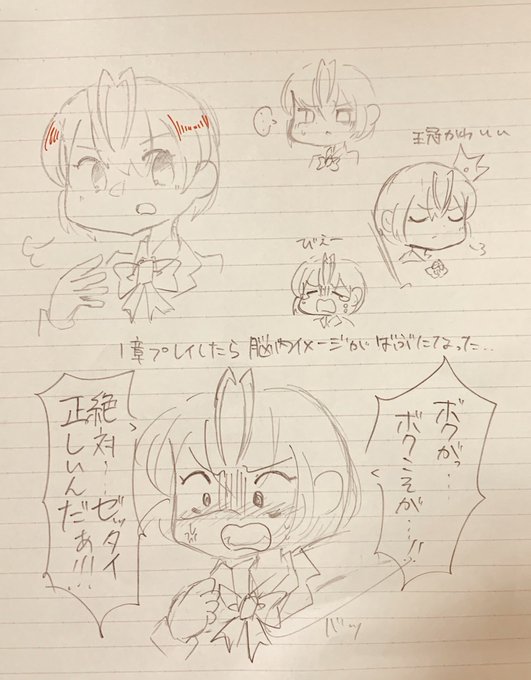 王冠かわいい
びえー
1章プレイしたら脳内イメージがばぶになった…
ボクがっ…
ボクこそが…!!
絶対…ゼッタイ
正しいんだぁ!!!